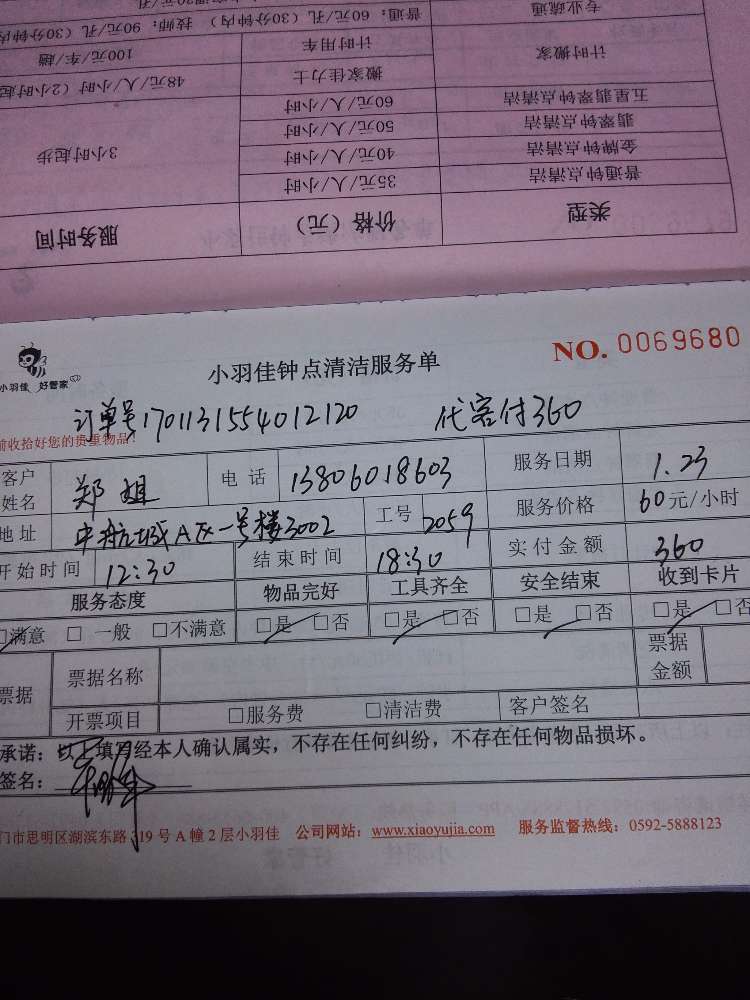 专业疏通
普通：60元/孔（30分钟内） 技师：90元/孔（30分钟内
计时搬家
计时用车
100元/车/趟
搬家佳力士
48元/人/小时（2小时起
五星翡翠钟点清洁
60元/人/小时
翡翠钟点清洁
50元/人/小时
金牌钟点清洁
40元/人/小时
普通钟点清洁
35元/人/小时
3小时起步
类型
价格（元）
服务时间
小羽佳 好管家
小羽佳钟点清洁服务单
NO. 0069680
订单号1701131554012120 代客付360
前收拾好您的贵重物品！
客户姓名 郑姐 电话 13806018603 服务日期 1.23
地址 中航城A区一号楼3002 工号 2059 服务价格 60元/小时
开始时间 12:30 结束时间 18:30 实付金额 360
服务态度 物品完好 工具齐全 安全结束 收到卡片
□满意 □ 一般 □不满意 □是 □否 □是 □否 □是 □否 □是 □否
票据 票据名称 票据金额
开票项目 □服务费 □清洁费 客户签名
承诺：以上填写经本人确认属实，不存在任何纠纷，不存在任何物品损坏。
签名：
门市思明区湖滨东路319号A幢2层小羽佳 公司网站：www.xiaoyujia.com 服务监督热线：0592-5888123